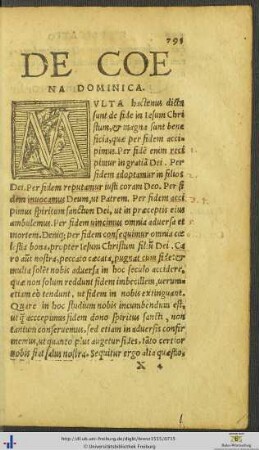 791
DE COE
NA DOMINICA.
MVLTA hactenus dicta
sunt de fide in Iesum Chri
stum, & magna sunt bene
ficia, quæ per fidem acci
pimus. Per fidē enim reci
pimur in gratiā Dei. Per
fidem adoptamur in filios
Dei. Per fidem reputamur iusti coram Deo. Per fi
dem inuocamus Deum, ut Patrem. Per fidem acci
pimus spiritum sanctum Dei, ut in præceptis eius
ambulemus. Per fidem uincimus omnia aduersa et
mortem. Deniq; per fidem consequimur omnia cœ
lestia bona, propter Iesum Christum filiū Dei. Ca
ro aūt nostra, peccato cæcata, pugnat cum fide: et
multa solēt nobis aduersa in hoc seculo accidere,
quæ non solum reddunt fidem imbecillem, uerum
etiam eò tendunt, ut fidem in nobis extinguant.
Quare in hoc studium nobis incumbendum est,
ut q̄ accepimus fidem dono spiritus sancti, non
tantum conseruemus, sed etiam in aduersis confir
memus, ut quanto plus augetur fides, tāto certior
nobis fiat salus nostra. Sequitur ergo alia quæstio,
X 4
http://dl.ub.uni-freiburg.de/diglit/
© Universitätsbibliothek Freiburg